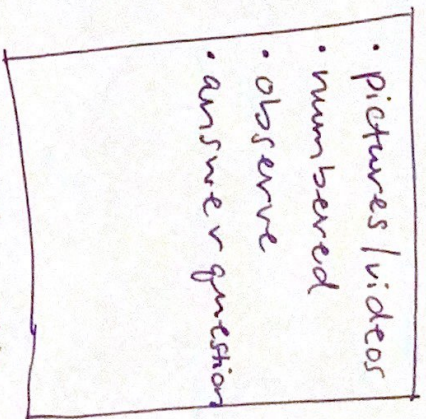 • pictures/videos
• numbered
• observe
• answer question